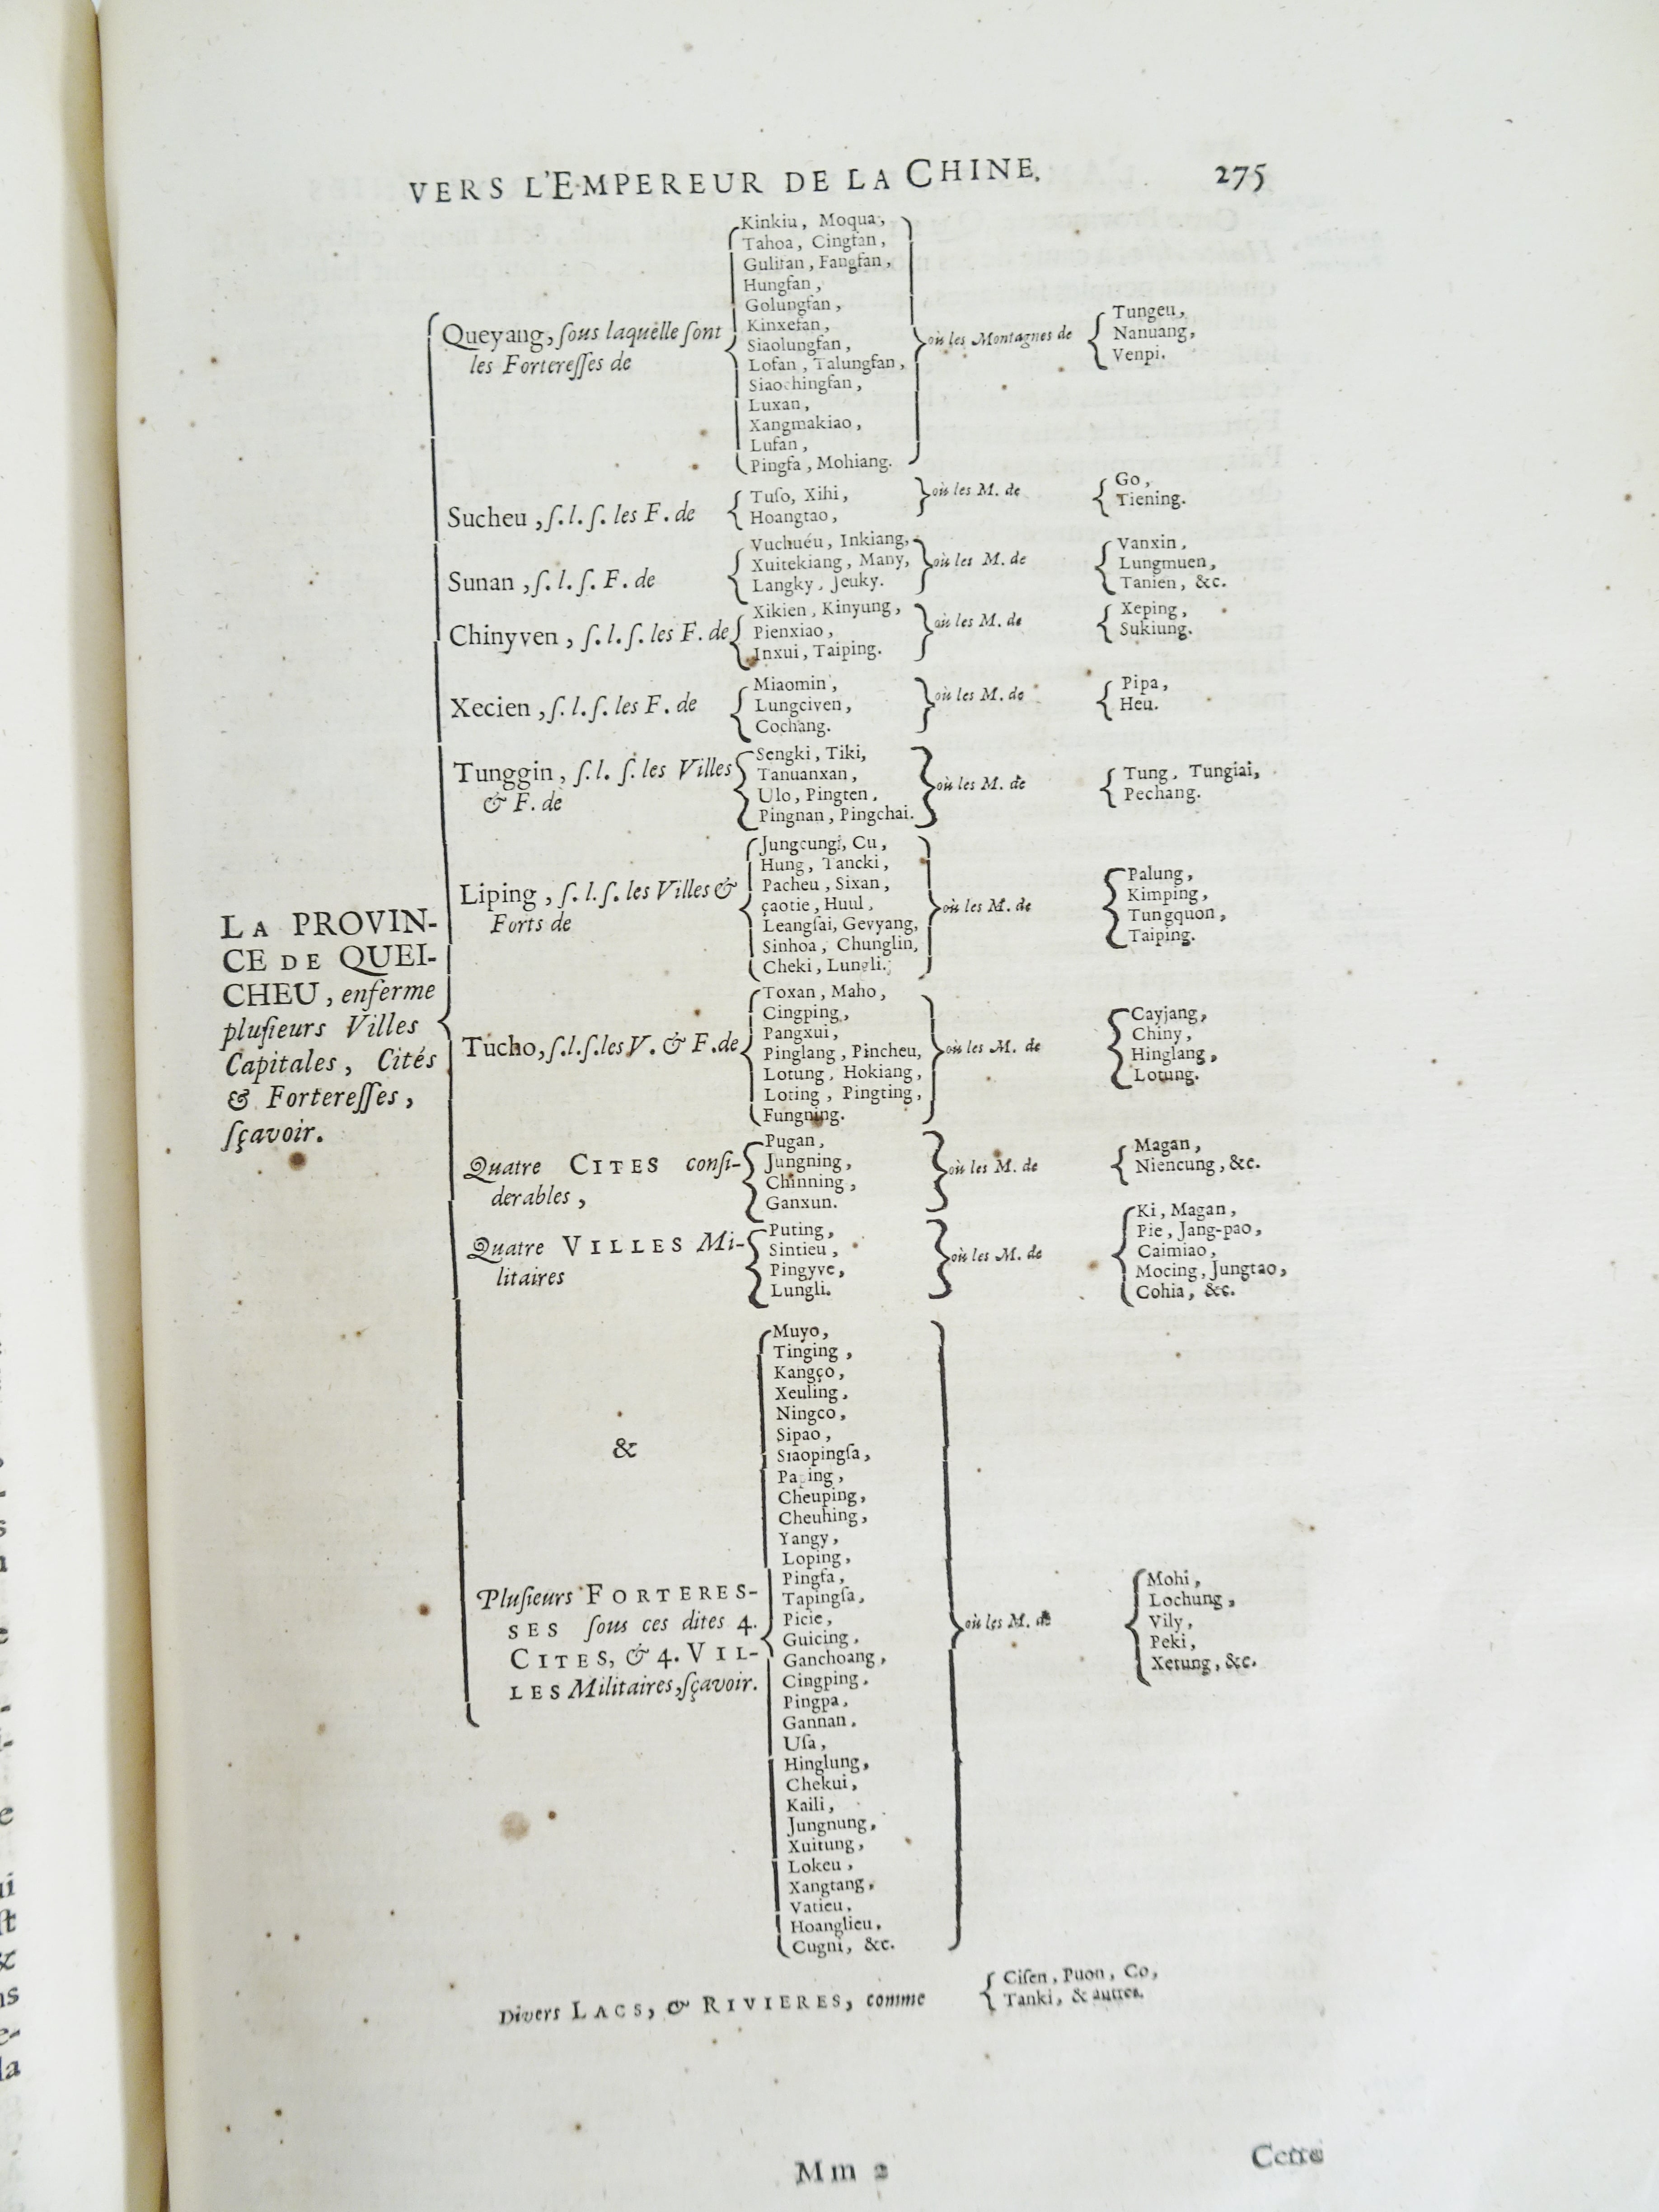 VERS L'EMPEREUR DE LA CHINE. 275
LA PROVIN-
CE DE QUEI-
CHEU, enferme
pluſieurs Villes
Capitales, Cités
& Fortereſſes,
ſçavoir.
Queyang, ſous laquelle ſont
les Fortereſſes de
Kinkiu, Moqua,
Tahoa, Cingfan,
Gulitan, Fangfan,
Hungfan,
Golungfan,
Kinxefan,
Siaolungfan,
Lofan, Talungfan,
Siaochingfan,
Luxan,
Xangmakiao,
Lufan,
Pingfa, Mohiang.
où les Montagnes de
Tungeu,
Nanuang,
Venpi.
Sucheu, ſ. l. ſ. les F. de
Tuſo, Xihi,
Hoangtao,
où les M. de
Go,
Tiening.
Sunan, ſ. l. ſ. F. de
Vuchuéu, Inkiang,
Xuitekiang, Many,
Langky, Jeuky.
où les M. de
Vanxin,
Lungmuen,
Tanien, &c.
Chinyven, ſ. l. ſ. les F. de
Xikien, Kinyung,
Pienxiao,
Inxui, Taiping.
où les M. de
Xeping,
Sukiung.
Xecien, ſ. l. ſ. les F. de
Miaomin,
Lungciven,
Cochang.
où les M. de
Pipa,
Heu.
Tunggin, ſ. l. ſ. les Villes
& F. de
Sengki, Tiki,
Tanuanxan,
Ulo, Pingten,
Pingnan, Pingchai.
où les M. de
Tung, Tungiai,
Pechang.
Liping, ſ. l. ſ. les Villes &
Forts de
Jungcung, Cu,
Hung, Tancki,
Pacheu, Sixan,
çaotie, Huul,
Leangſai, Gevyang,
Sinhoa, Chunglin,
Cheki, Lungli.
où les M. de
Palung,
Kimping,
Tungquon,
Taiping.
Tucho, ſ. l. ſ. les V. & F. de
Toxan, Maho,
Cingping,
Pangxui,
Pinglang, Pincheu,
Lotung, Hokiang,
Loting, Pingting,
Fungning.
où les M. de
Cayjang,
Chiny,
Hinglang,
Lotung.
Quatre CITES conſi-
derables,
Pugan,
Jungning,
Chinning,
Ganxun.
où les M. de
Magan,
Niencung, &c.
Quatre VILLES Mi-
litaires
Puting,
Sintieu,
Pingyve,
Lungli.
où les M. de
Ki, Magan,
Pie, Jang-pao,
Caimiao,
Mocing, Jungtao,
Cohia, &c.
&
Pluſieurs FORTERES-
SES ſous ces dites 4.
CITES, & 4. VIL-
LES Militaires, ſçavoir.
Muyo,
Tinging,
Kangço,
Xeuling,
Ningco,
Sipao,
Siaopingſa,
Paping,
Cheuping,
Cheuhing,
Yangy,
Loping,
Pingfa,
Tapingſa,
Picie,
Guicing,
Ganchoang,
Cingping,
Pingpa,
Gannan,
Uſa,
Hinglung,
Chekui,
Kaili,
Jungnung,
Xuitung,
Lokeu,
Xangtang,
Vatieu,
Hoanglieu,
Cugni, &c.
où les M. de
Mohi,
Lochung,
Vily,
Peki,
Xetung, &c.
Divers LACS, & RIVIERES, comme
Ciſen, Puon, Co,
Tanki, & autres.
Mm 2 Cette